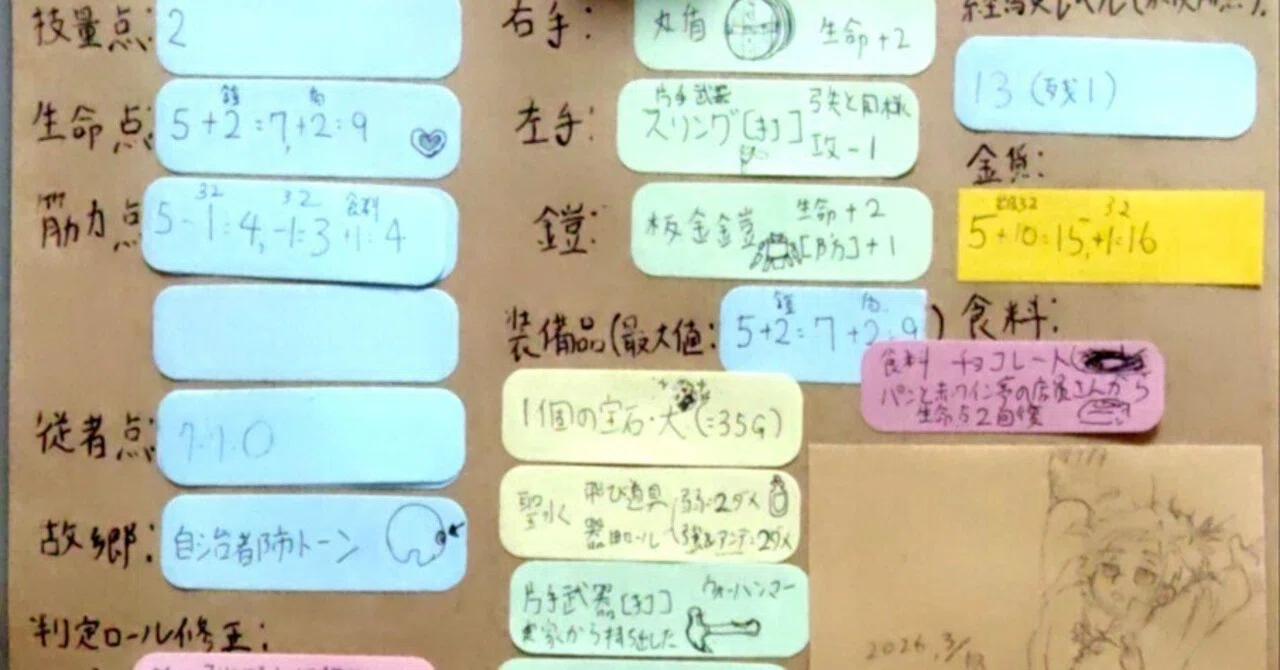 技量点:
2
生命点:
鎧 盾
5+2=7,+2=9
筋力点
32 32 食料
5-1=4,-1=3 +1=4
従者点:
故郷:
自治都市トーン
判定ロール修正:
右手:
丸盾 生命+2
左手:
片手武器
スリング[打] 弓矢と同様
攻-1
鎧:
板金鎧 生命+2
[防]+1
装備品(最大値:
鎧 盾
5+2=7+2=9)
1個の宝石・大(=35G)
聖水 飛び道具 弱:2ダメ
器用ロール 強&アンデ:2ダメ
片手武器[打] ウォーハンマー
実家から持ち出した
13(残1)
金貨:
32
5+10=15,+1=16
食料:
食料 チョコレート
パンと赤ワイン亭の店員さんから
生命点2回復
2026.3/